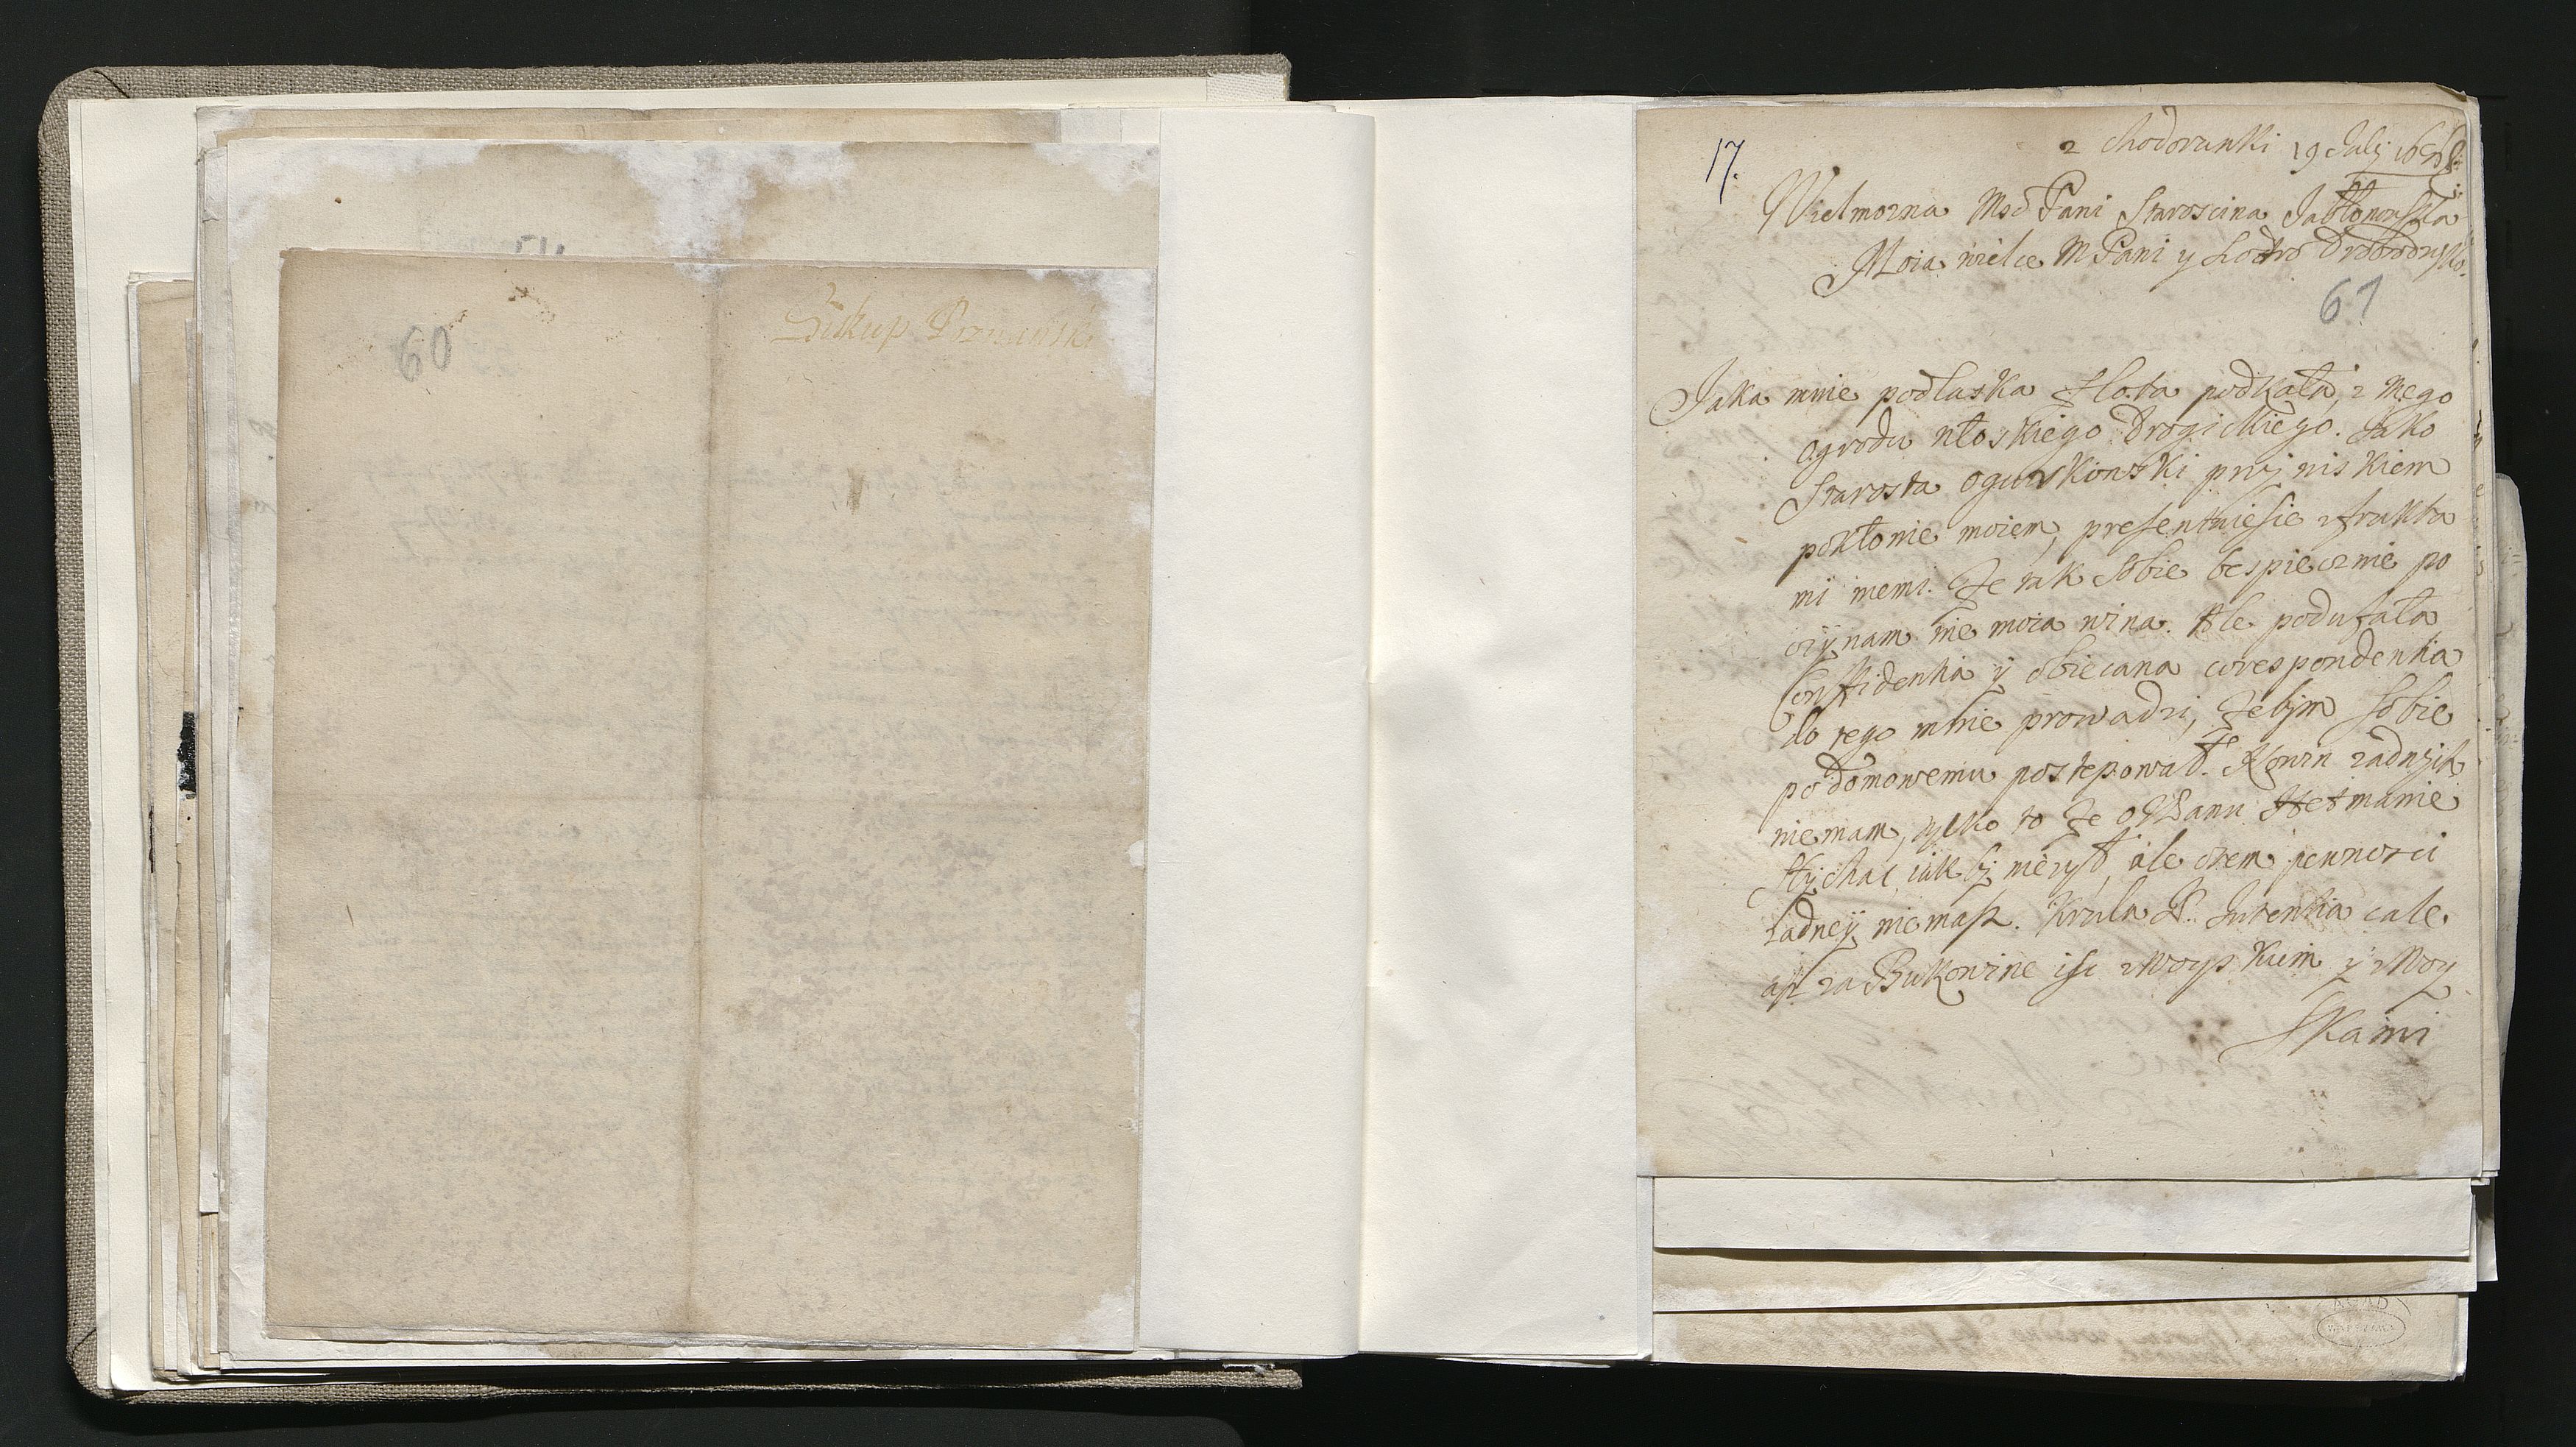 60
Biskup Poznanski
17.
z Chodorunki 19 Julij
Wielmozna Msc Pani Staroscina Jabłonowska
Moia wielce M Pani y
61
Jaka mnie podlaska flota podkała, z mego
ogrodu włoskiego Drogickiego. Jako
Starosta ogurkowski przy niskiem
pokłonie moiem, presentuiesie zfrukta
mi memi. Ze tak sobie bespiecznie po
czynam nie moia wina. Ale podufała
Confidentia y obiecana correspondentia
do tego mnie prowadzi, zebym sobie
podomowemu postepował. Nowin zadnych
niemam, tylko to ze o Panu Hetmanie
słychac iak by nie zył, ale czem pewnosci
zadney niemasz. Krula P. Intentia cale
asz za Bukowine isc zwoys kiem y Moy
Skami